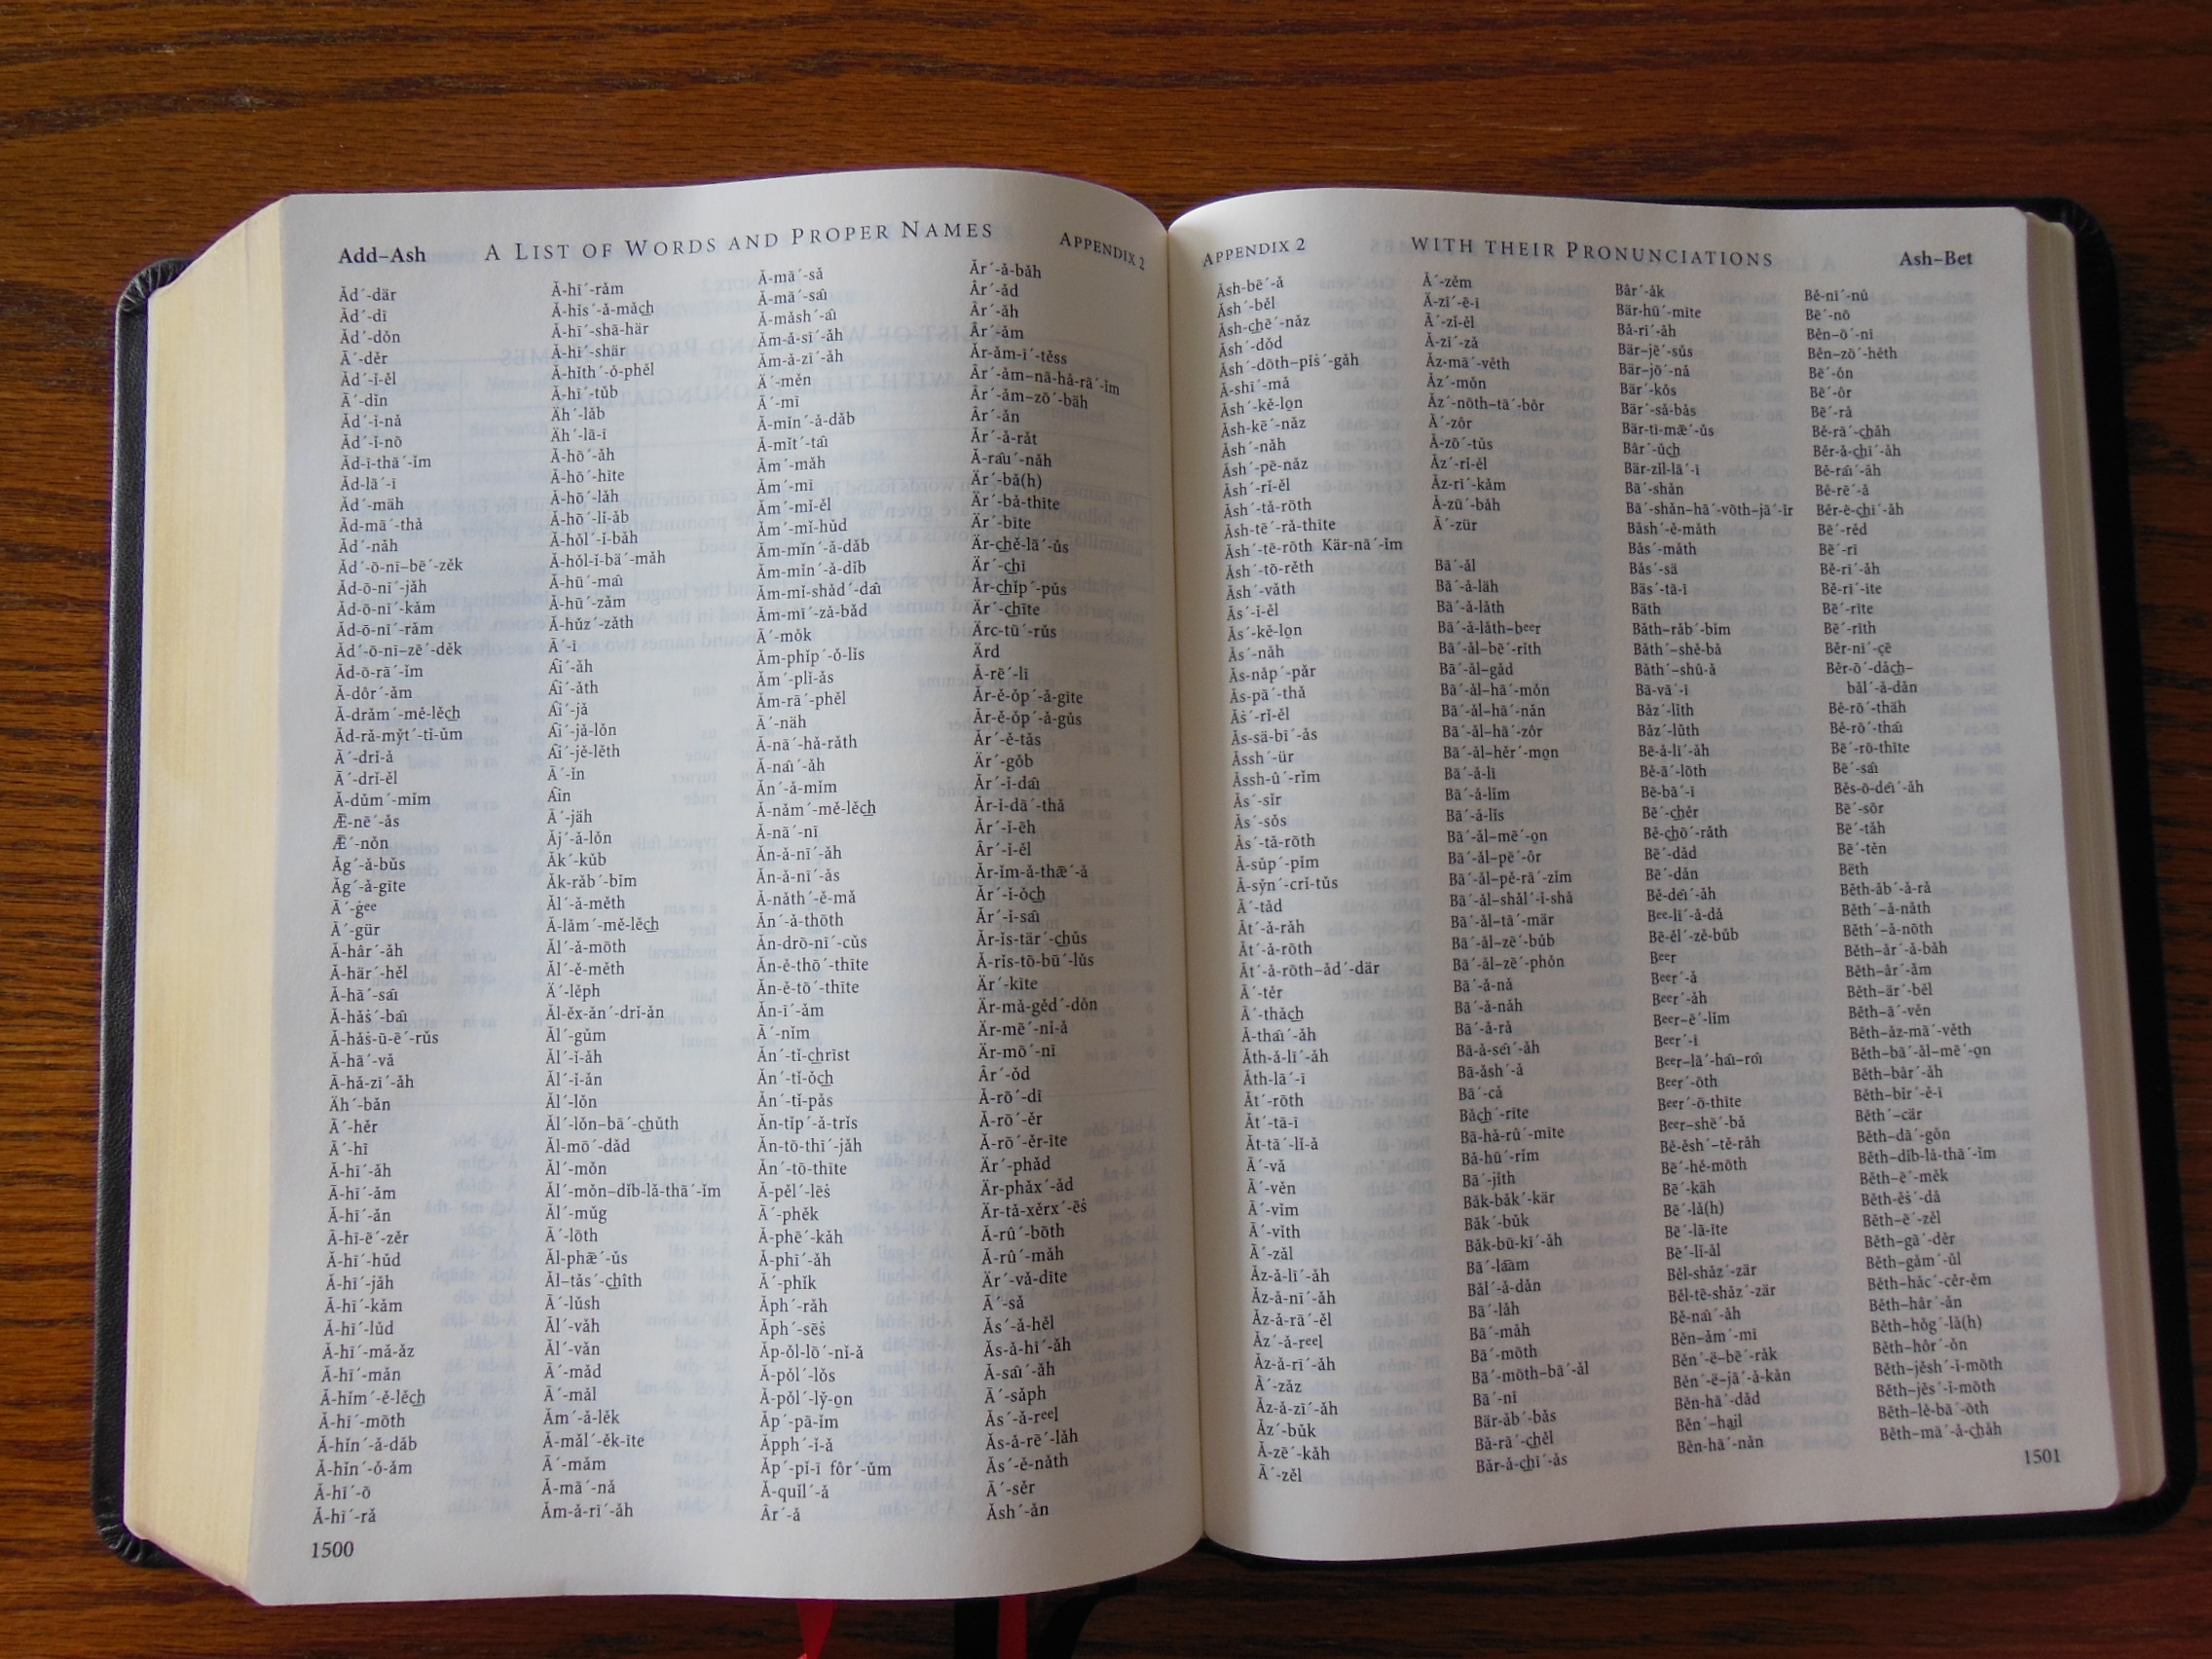 Add–Ash A LIST OF WORDS AND PROPER NAMES APPENDIX 2
Ăd´-där
Ăd´-dī
Ăd´-dŏn
Ā´-dĕr
Ăd´-ĭ-ĕl
Ā´-dĭn
Ăd´-ĭ-nȧ
Ăd´-ĭ-nō
Ăd-ĭ-thā´-ĭm
Ăd-lā´-ī
Ăd´-mäh
Ăd-mā´-thȧ
Ăd´-năh
Ăd´-ō-nī–bē´-zĕk
Ăd-ō-nī´-jăh
Ăd-ō-nī´-kăm
Ăd-ō-nī´-răm
Ăd´-ō-nī–zē´-dĕk
Ăd-ō-rā´-ĭm
Ă-dôr´-ăm
Ă-drăm´-mĕ-lĕc̲h̲
Ăd-rȧ-my̆t´-tĭ-ŭm
Ā´-drĭ-ȧ
Ā´-drĭ-ĕl
Ȧ-dŭm´-mĭm
Ǣ-nē´-ăs
Ǣ´-nŏn
Ăg´-ȧ-bŭs
Ăg´-ȧ-gīte
Ā´-ġee
Ā´-gür
Ă-hâr´-ăh
Ă-här´-hĕl
Ă-hā´-sa͡ı
Ă-hăṡ´-ba͡ı
Ă-hăṡ-ū-ē´-rŭs
Ă-hā´-vȧ
Ā-hȧ-zī´-ăh
Äh´-băn
Ā´-hĕr
Ā´-hī
Ă-hī´-ăh
Ă-hī´-ăm
Ă-hī´-ăn
Ā-hī-ē´-zĕr
Ă-hī´-hŭd
Ă-hī´-jăh
Ă-hī´-kăm
Ă-hī´-lŭd
Ă-hī´-mȧ-ăz
Ă-hī´-măn
Ă-hĭm´-ĕ-lĕc̲h̲
Ă-hī´-mōth
Ă-hĭn´-ȧ-dăb
Ă-hĭn´-ŏ-ăm
Ă-hī´-ō
Ă-hī´-rȧ
Ă-hī´-răm
Ă-hĭs´-ȧ-măc̲h̲
Ă-hī´-shā-här
Ă-hī´-shär
Ă-hĭth´-ŏ-phĕl
Ă-hī´-tŭb
Äh´-lăb
Äh´-lā-ī
Ă-hō´-ăh
Ă-hō´-hīte
Ă-hō´-lăh
Ă-hō´-lĭ-ăb
Ă-hŏl´-ĭ-băh
Ă-hŏl-ĭ-bä´-măh
Ă-hū´-ma͡ı
Ă-hū´-zăm
Ă-hŭz´-zăth
Ā´-ī
A͡i´-ăh
A͡i´-ăth
A͡i´-jȧ
A͡i´-jȧ-lŏn
A͡i´-jĕ-lĕth
Ā´-ĭn
A͡in
Ā´-jäh
Ăj´-ȧ-lŏn
Ăk´-kŭb
Ăk-răb´-bĭm
Ăl´-ȧ-mĕth
Ă-lăm´-mĕ-lĕc̲h̲
Ăl´-ȧ-mōth
Ăl´-ĕ-mĕth
Ä´-lĕph
Ăl-ĕx-ăn´-drĭ-ăn
Ăl´-gŭm
Ăl´-ĭ-ăh
Ăl´-ĭ-ăn
Ăl´-lŏn
Ăl´-lŏn–bā´-c̲h̲ŭth
Ăl-mō´-dăd
Ăl´-mŏn
Ăl´-mŏn–dĭb-lȧ-thā´-ĭm
Ăl´-mŭg
Ā´-lōth
Ăl-phǣ´-ŭs
Ăl–tăs´-c̲h̲îth
Ā´-lŭsh
Ăl´-văh
Ăl´-văn
Ā´-măd
Ā´-măl
Ăm´-ȧ-lĕk
Ă-măl´-ĕk-īte
Ā´-măm
Ă-mā´-nȧ
Ăm-ȧ-rī´-ăh
Ă-mā´-sȧ
Ă-mā´-sa͡ı
Ă-măsh´-a͡ı
Ăm-ȧ-sī´-ăh
Ăm-ȧ-zī´-ăh
Ä´-mĕn
Ā´-mī
Ă-mĭn´-ȧ-dăb
Ă-mĭt´-ta͡ı
Ăm´-măh
Ăm´-mī
Ăm´-mĭ-ĕl
Ăm´-mĭ-hŭd
Ăm-mĭn´-ȧ-dăb
Ăm-mĭn´-ȧ-dĭb
Ăm-mĭ-shăd´-da͡ı
Ăm-mī´-zȧ-băd
Ā´-mŏk
Ăm-phĭp´-ŏ-lĭs
Ăm´-plĭ-ăs
Ăm-rā´-phĕl
Ā´-näh
Ă-nā´-hȧ-răth
Ă-na͡ı´-ăh
Ăn´-ȧ-mĭm
Ă-năm´-mĕ-lĕc̲h̲
Ă-nā´-nī
Ăn-ȧ-nī´-ăh
Ăn-ȧ-nī´-ăs
Ă-năth´-ĕ-mȧ
Ăn´-ȧ-thōth
Ăn-drō-nī´-cŭs
Ăn-ĕ-thō´-thīte
Ăn-ĕ-tō´-thīte
Ăn-ī´-ăm
Ā´-nĭm
Ăn´-tĭ-c̲h̲rīst
Ăn´-tĭ-ŏc̲h̲
Ăn´-tĭ-păs
Ăn-tĭp´-ȧ-trĭs
Ăn-tō-thī´-jăh
Ăn´-tō-thīte
Ă-pĕl´-lēṡ
Ā´-phĕk
Ă-phē´-kăh
Ă-phī´-ăh
Ā´-phĭk
Ăph´-răh
Ăph´-sēṡ
Ăp-ŏl-lō´-nĭ-ȧ
Ă-pŏl´-lŏs
Ă-pŏl´-ly̆-o̲n
Ăp´-pā-ĭm
Ăpph´-ĭ-ȧ
Ăp´-pĭ-ī fôr´-ŭm
Ă-quĭl´-ȧ
Âr´-ȧ
Ăr´-ȧ-băh
Âr´-ăd
Âr´-ăh
Âr´-ăm
Ăr-ăm-ī´-tĕss
Âr´-ăm–nā-hȧ-rā´-ĭm
Âr´-ăm–zō´-bäh
Âr´-ăn
Ăr´-ȧ-răt
Ă-ra͡u´-năh
Är´-bȧ(h)
Är´-bȧ-thīte
Är´-bīte
Är-c̲h̲ĕ-lā´-ŭs
Är´-c̲h̲ī
Är-c̲h̲ĭp´-pŭs
Är´-c̲h̲īte
Ärc-tū´-rŭs
Ärd
Ă-rē´-lī
Ăr-ĕ-ŏp´-ȧ-gīte
Ăr-ĕ-ŏp´-ȧ-gŭs
Ăr´-ĕ-tăs
Är´-gŏb
Ăr´-ĭ-da͡ı
Ăr-ĭ-dā´-thȧ
Ăr´-ĭ-ēh
Âr´-ĭ-ĕl
Ăr-ĭm-ȧ-thǣ´-ȧ
Ăr´-ĭ-ŏc̲h̲
Ăr´-ĭ-sa͡ı
Ăr-ĭs-tär´-c̲h̲ŭs
Ă-rĭs-tō-bū´-lŭs
Är´-kīte
Är-mȧ-gĕd´-dŏn
Är-mē´-nĭ-ȧ
Är-mō´-nī
Âr´-ŏd
Ă-rō´-dī
Ă-rō´-ĕr
Ă-rō´-ĕr-īte
Är´-phăd
Är-phăx´-ăd
Är-tȧ-xĕrx´-ēṡ
Ă-rû´-bōth
Ă-rû´-măh
Är´-vȧ-dīte
Ā´-sȧ
Ăs´-ȧ-hĕl
Ăs-ȧ-hī´-ăh
Ă-sa͡ı´-ăh
Ā´-săph
Ăs´-ȧ-reel
Ăs-ȧ-rē´-lăh
Ăs´-ĕ-năth
Ā´-sĕr
Ăsh´-ăn
1500
APPENDIX 2 WITH THEIR PRONUNCIATIONS Ash–Bet
Ăsh-bē´-ȧ
Ăsh´-bĕl
Ăsh-c̲h̲ē´-năz
Ăsh´-dŏd
Ăsh´-dōth–pĭṡ´-găh
Ă-shī´-mȧ
Ăsh´-kĕ-lo̲n
Ăsh-kē´-năz
Ăsh´-năh
Ăsh´-pē-năz
Ăsh´-rĭ-ĕl
Ăsh´-tȧ-rōth
Ăsh-tē´-rȧ-thīte
Ăsh´-tē-rōth Kär-nā´-ĭm
Ăsh´-tō-rĕth
Ăsh´-văth
Ăs´-ĭ-ĕl
Ăs´-kĕ-lo̲n
Ăs´-năh
Ăs-năp´-păr
Ăs-pā´-thȧ
Ăṡ´-rĭ-ĕl
Ăs-sā-bī´-ăs
Ăssh´-ür
Ăssh-û´-rĭm
Ăs´-sĭr
Ăs´-sŏs
Ăs´-tȧ-rōth
Ă-sŭp´-pĭm
Ă-sy̆n´-crĭ-tŭs
Ā´-tăd
Ăt´-ȧ-răh
Ăt´-ȧ-rōth
Ăt´-ȧ-rōth–ăd´-där
Ā´-tĕr
Ā´-thăc̲h̲
Ă-tha͡ı´-ăh
Ăth-ȧ-lī´-ăh
Ăth-lā´-ī
Ăt´-rōth
Ăt´-tā-ī
Ăt-tā´-lĭ-ȧ
Ā´-vȧ
Ā´-vĕn
Ā´-vĭm
Ā´-vĭth
Ā´-zăl
Ăz-ȧ-lī´-ăh
Ăz-ȧ-nī´-ăh
Ăz-ȧ-rā´-ĕl
Ăz´-ȧ-reel
Ăz-ȧ-rī´-ăh
Ā´-zăz
Ăz-ȧ-zī´-ăh
Ăz´-bŭk
Ă-zē´-kăh
Ā´-zĕl
Ā´-zĕm
Ă-zī´-ē-ī
Ā´-zĭ-ĕl
Ă-zī´-zȧ
Ăz-mā´-vĕth
Ăz´-mŏn
Ăz´-nōth–tā´-bôr
Ā´-zôr
Ă-zō´-tŭs
Ăz´-rĭ-ĕl
Ăz-rī´-kăm
Ă-zū´-băh
Ā´-zür
Bā´-ăl
Bā´-ȧ-läh
Bā´-ȧ-lăth
Bā´-ȧ-lăth–beer
Bā´-ăl–bē´-rĭth
Bā´-ăl–găd
Bā´-ăl–hā´-mŏn
Bā´-ăl–hā´-năn
Bā´-ăl–hā´-zôr
Bā´-ăl–hĕr´-mo̲n
Bā´-ȧ-lī
Bā´-ȧ-lĭm
Bā´-ȧ-lĭs
Bā´-ăl–mē´-o̲n
Bā´-ăl–pē´-ôr
Bā´-ăl–pĕ-rā´-zĭm
Bā´-ăl–shăl´-ĭ-shȧ
Bā´-ăl–tā´-mär
Bā´-ăl–zē´-bŭb
Bā´-ăl–zē´-phŏn
Bā´-ȧ-nȧ
Bā´-ȧ-năh
Bā´-ȧ-rȧ
Bā-ȧ-se͡ı´-ăh
Bā-ăsh´-ȧ
Bā´-cȧ
Băc̲h̲´-rīte
Bā-hȧ-rû´-mīte
Bȧ-hū´-rĭm
Bā´-jĭth
Băk-băk´-kär
Băk´-bŭk
Băk-bū-kī´-ăh
Bā´-la͡am
Băl´-ȧ-dăn
Bā´-lăh
Bā´-măh
Bā´-mōth
Bā´-mōth–bā´-ăl
Bā´-nī
Bär-ăb´-băs
Bȧ-rā´-c̲h̲ĕl
Băr-ȧ-c̲h̲ī´-ăs
Bâr´-ăk
Bär-hū´-mīte
Bȧ-rī´-ăh
Bär–jē´-sŭs
Bär–jō´-nȧ
Bär´-kŏs
Bär´-sȧ-băs
Bär-tĭ-mǣ´-ŭs
Bâr´-ŭc̲h̲
Bär-zĭl-lā´-ī
Bā´-shăn
Bā´-shăn–hā´-vōth–jā´-ĭr
Băsh´-ĕ-măth
Băs´-măth
Băs´-sä
Băs´-tā-ī
Băth
Băth–răb´-bĭm
Băth´–shĕ-bȧ
Băth´–shû-ȧ
Bā-vā´-ī
Băz´-lĭth
Băz´-lŭth
Bē-ȧ-lī´-ăh
Bĕ-ā´-lōth
Bē-bā´-ī
Bē´-c̲h̲ĕr
Bĕ-c̲h̲ō´-răth
Bē´-dăd
Bē´-dăn
Bĕ-de͡ı´-ăh
Bee-lī´-ȧ-dȧ
Bē-ĕl´-zĕ-bŭb
Beer
Beer´-ȧ
Beer´-ăh
Beer–ē´-lĭm
Beer´-ī
Beer–lā´-ha͡ı–ro͡ı
Beer´-ōth
Beer´-ō-thīte
Beer–shē´-bȧ
Bĕ-ĕsh´–tĕ-răh
Bē´-hĕ-mōth
Bē´-käh
Bē´-lȧ(h)
Bē´-lā-īte
Bē´-lĭ-ăl
Bĕl-shăz´-zär
Bĕl-tĕ-shăz´-zär
Bĕ-na͡ı´-ăh
Bĕn–ăm´-mī
Bĕn´-ĕ–bē´-răk
Bĕn´-ĕ–jā´-ȧ-kăn
Bĕn-hā´-dăd
Bĕn´–ha̲i̲l
Bĕn-hā´-năn
Bĕ-nī´-nû
Bē´-nō
Bĕn–ō´-nī
Bĕn–zō´-hĕth
Bē´-ŏn
Bē´-ôr
Bē´-rȧ
Bĕ-rā´-c̲h̲ăh
Bĕr-ȧ-c̲h̲ī´-ăh
Bĕ-ra͡ı´-ăh
Bĕ-rē´-ȧ
Bĕr-ĕ-c̲h̲ī´-ăh
Bē´-rĕd
Bē´-rī
Bĕ-rī´-ăh
Bĕ-rī´-īte
Bē´-rīte
Bē´-rĭth
Bĕr-nī´-çē
Bĕr-ō´-dăc̲h̲–
băl´-ȧ-dăn
Bĕ-rō´-thăh
Bĕ-rō´-tha͡ı
Bē´-rō-thīte
Bē´-sa͡ı
Bĕs-ō-de͡ı´-ăh
Bē´-sôr
Bē´-tăh
Bē´-tĕn
Bĕth
Bĕth-ăb´-ȧ-rȧ
Bĕth´–ȧ-năth
Bĕth´–ȧ-nōth
Bĕth–ăr´-ȧ-băh
Bĕth–âr´-ăm
Bĕth–är´-bĕl
Bĕth–ā´-vĕn
Bĕth–ăz-mā´-vĕth
Bĕth–bā´-ăl–mē´-o̲n
Bĕth–bâr´-ăh
Bĕth–bĭr´-ĕ-ī
Bĕth´–cär
Bĕth–dā´-gŏn
Bĕth–dĭb-lȧ-thā´-ĭm
Bĕth–ē´-mĕk
Bĕth-ĕṡ´-dȧ
Bĕth–ē´-zĕl
Bĕth–gā´-dĕr
Bĕth–găm´-ŭl
Bĕth–hăc´-cĕr-ĕm
Bĕth–hâr´-ăn
Bĕth–hŏg´-lȧ(h)
Bĕth–hôr´-ŏn
Bĕth–jĕsh´-ĭ-mōth
Bĕth–jĕs´-ĭ-mōth
Bĕth–lĕ-bā´-ōth
Bĕth–mā´-ȧ-c̲h̲ăh
1501